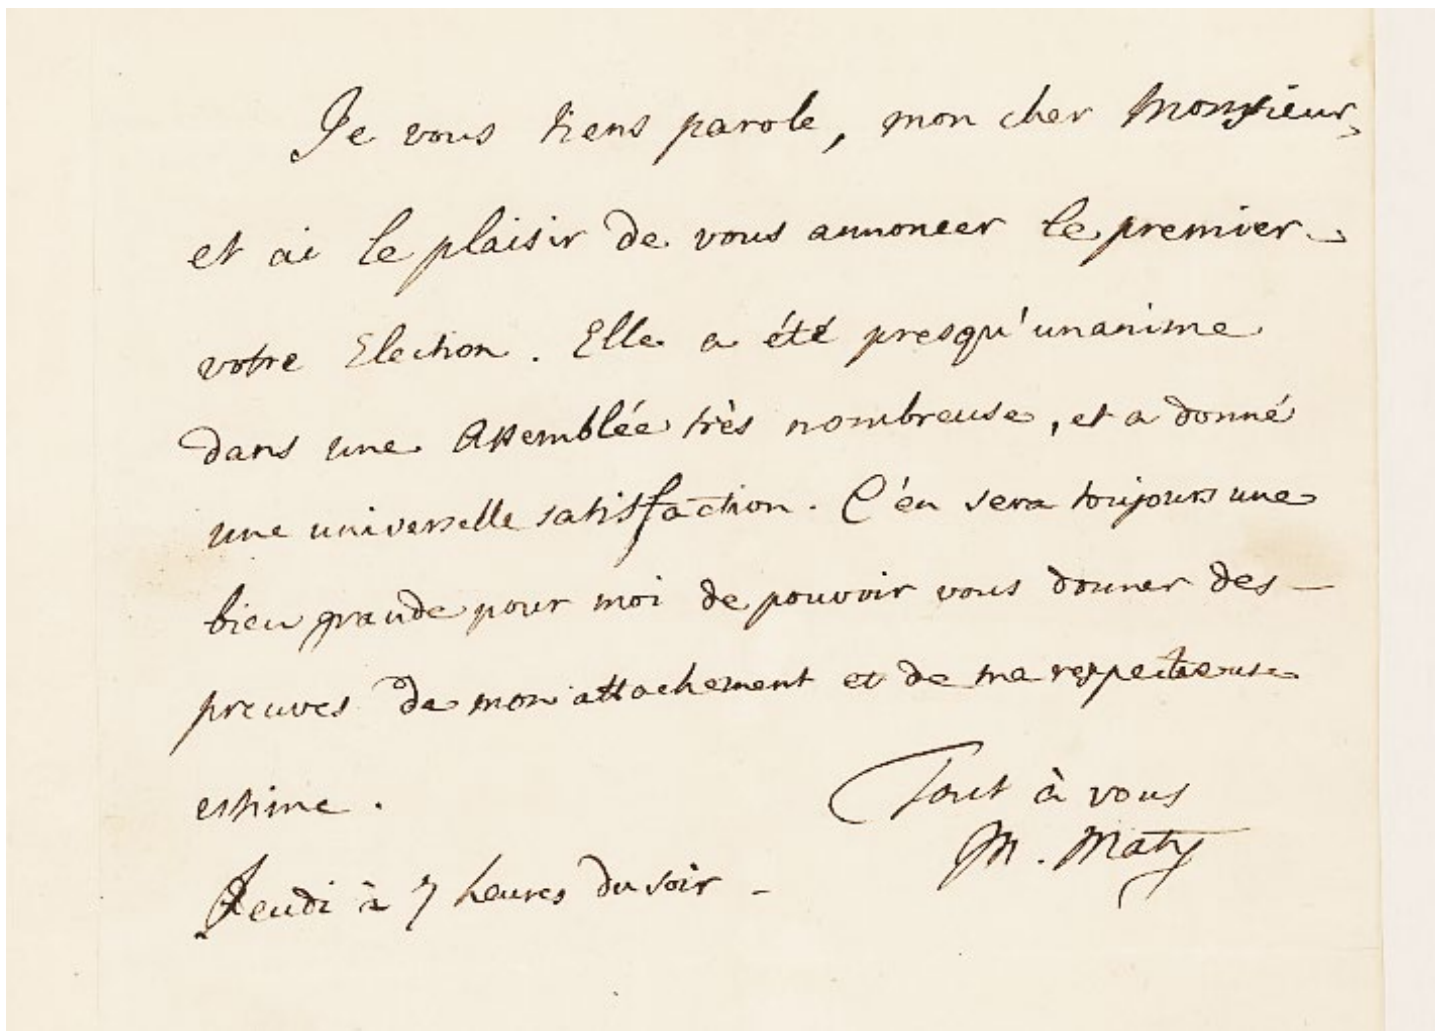 Je vous tiens parole, mon cher Monsieur,
et ai le plaisir de vous annoncer le premier
votre Election. Elle a été presqu'unanime
dans une Assemblée très nombreuse, et a donné
une universelle satisfaction. C'en sera toujours une
bien grande pour moi de pouvoir vous donner des
preuves de mon attachement et de ma respectueuse
estime.
Tout à vous
M. Maty
Jeudi à 7 heures du soir